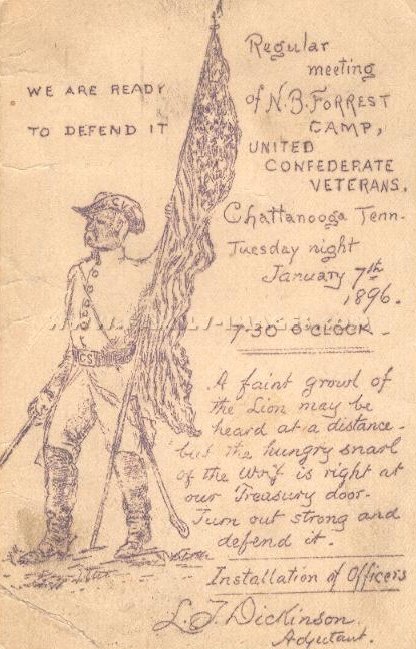 WE ARE READY
TO DEFEND IT
Regular
meeting
of N.B. FORREST
CAMP,
UNITED
CONFEDERATE
VETERANS.
Chattanooga Tenn.
Tuesday night
January 7th
1896.
7-30 O'CLOCK-
A faint growl of
the Lion may be
heard at a distance-
but the hungry snarl
of the Wolf is right at
our Treasury door-
Turn out strong and
defend it.
Installation of Officers
L. T. Dickinson
Adjutant.
CV
CS